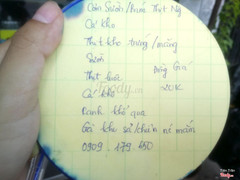 Cơm Sườn / Nướng Thịt Ng
Cá kho
Thịt kho trứng / măng
Sườn
Đồng Giá
Thịt luộc
20K
Cá khô
Canh khổ qua
Gà kho sả / chiên nc mắm
0909.179.450